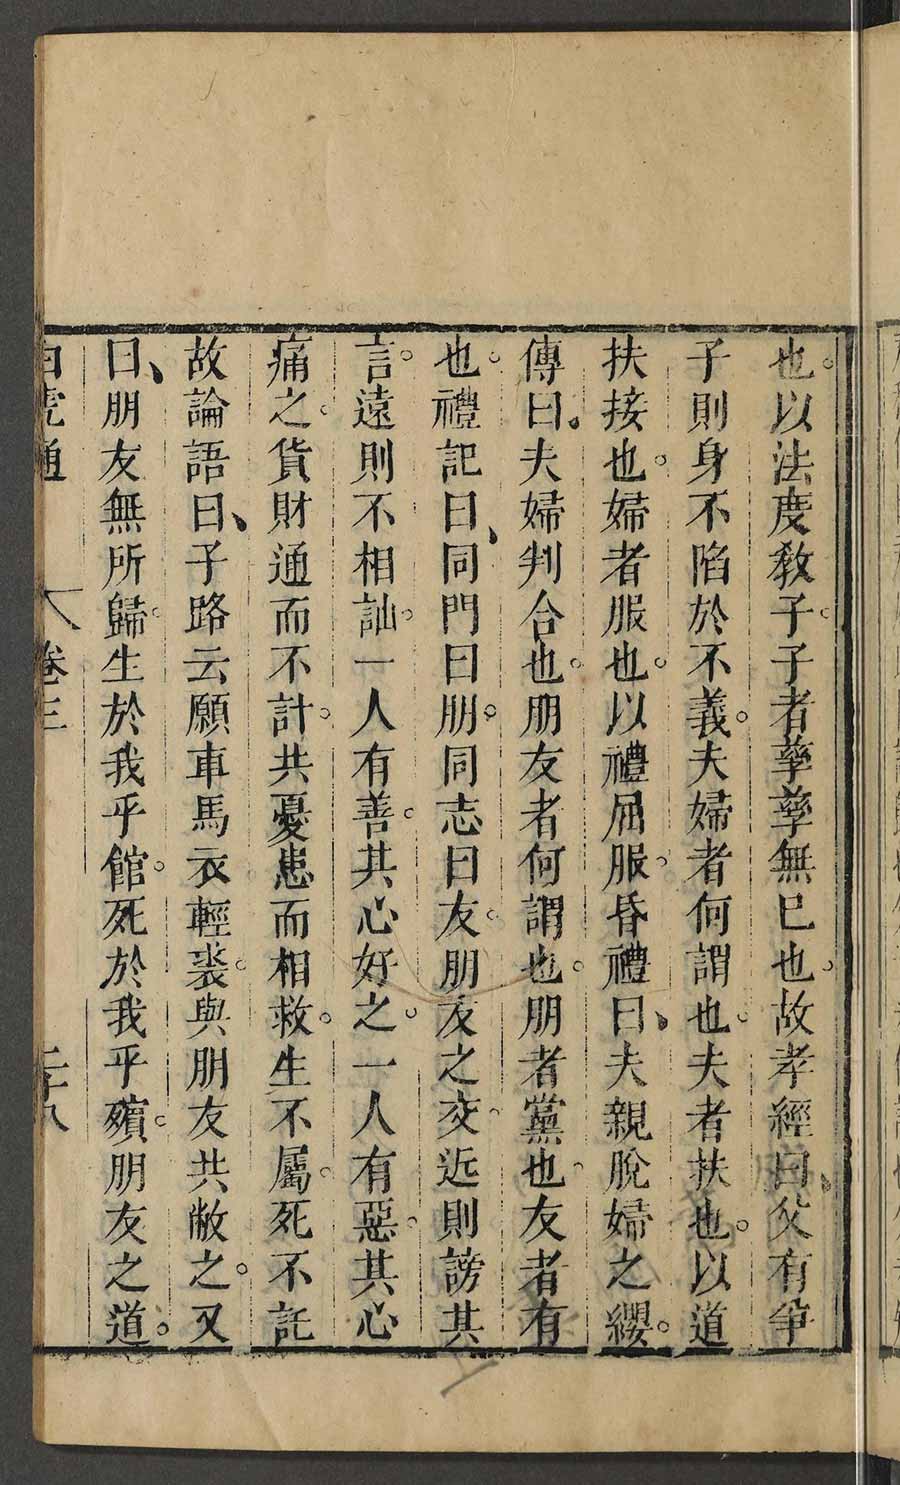 也。以法度敎子。子者孳孳無已也。故孝經曰、父有爭
子則身不陷於不義。夫婦者何謂也。夫者扶也。以道
扶接也。婦者服也。以禮屈服。昏禮曰、夫親脫婦之纓。
傳曰。夫婦判合也。朋友者何謂也。朋者黨也。友者有
也。禮記曰、同門曰朋。同志曰友。朋友之交。近則謗其
言。遠則不相訕。一人有善。其心好之。一人有惡。其心
痛之。貨財通而不計。共憂患而相救。生不屬。死不託
故論語曰、子路云願車馬衣輕裘。與朋友共敝之。又
曰、朋友無所歸。生於我乎館。死於我乎殯。朋友之道。
白虎通 卷三 二十八